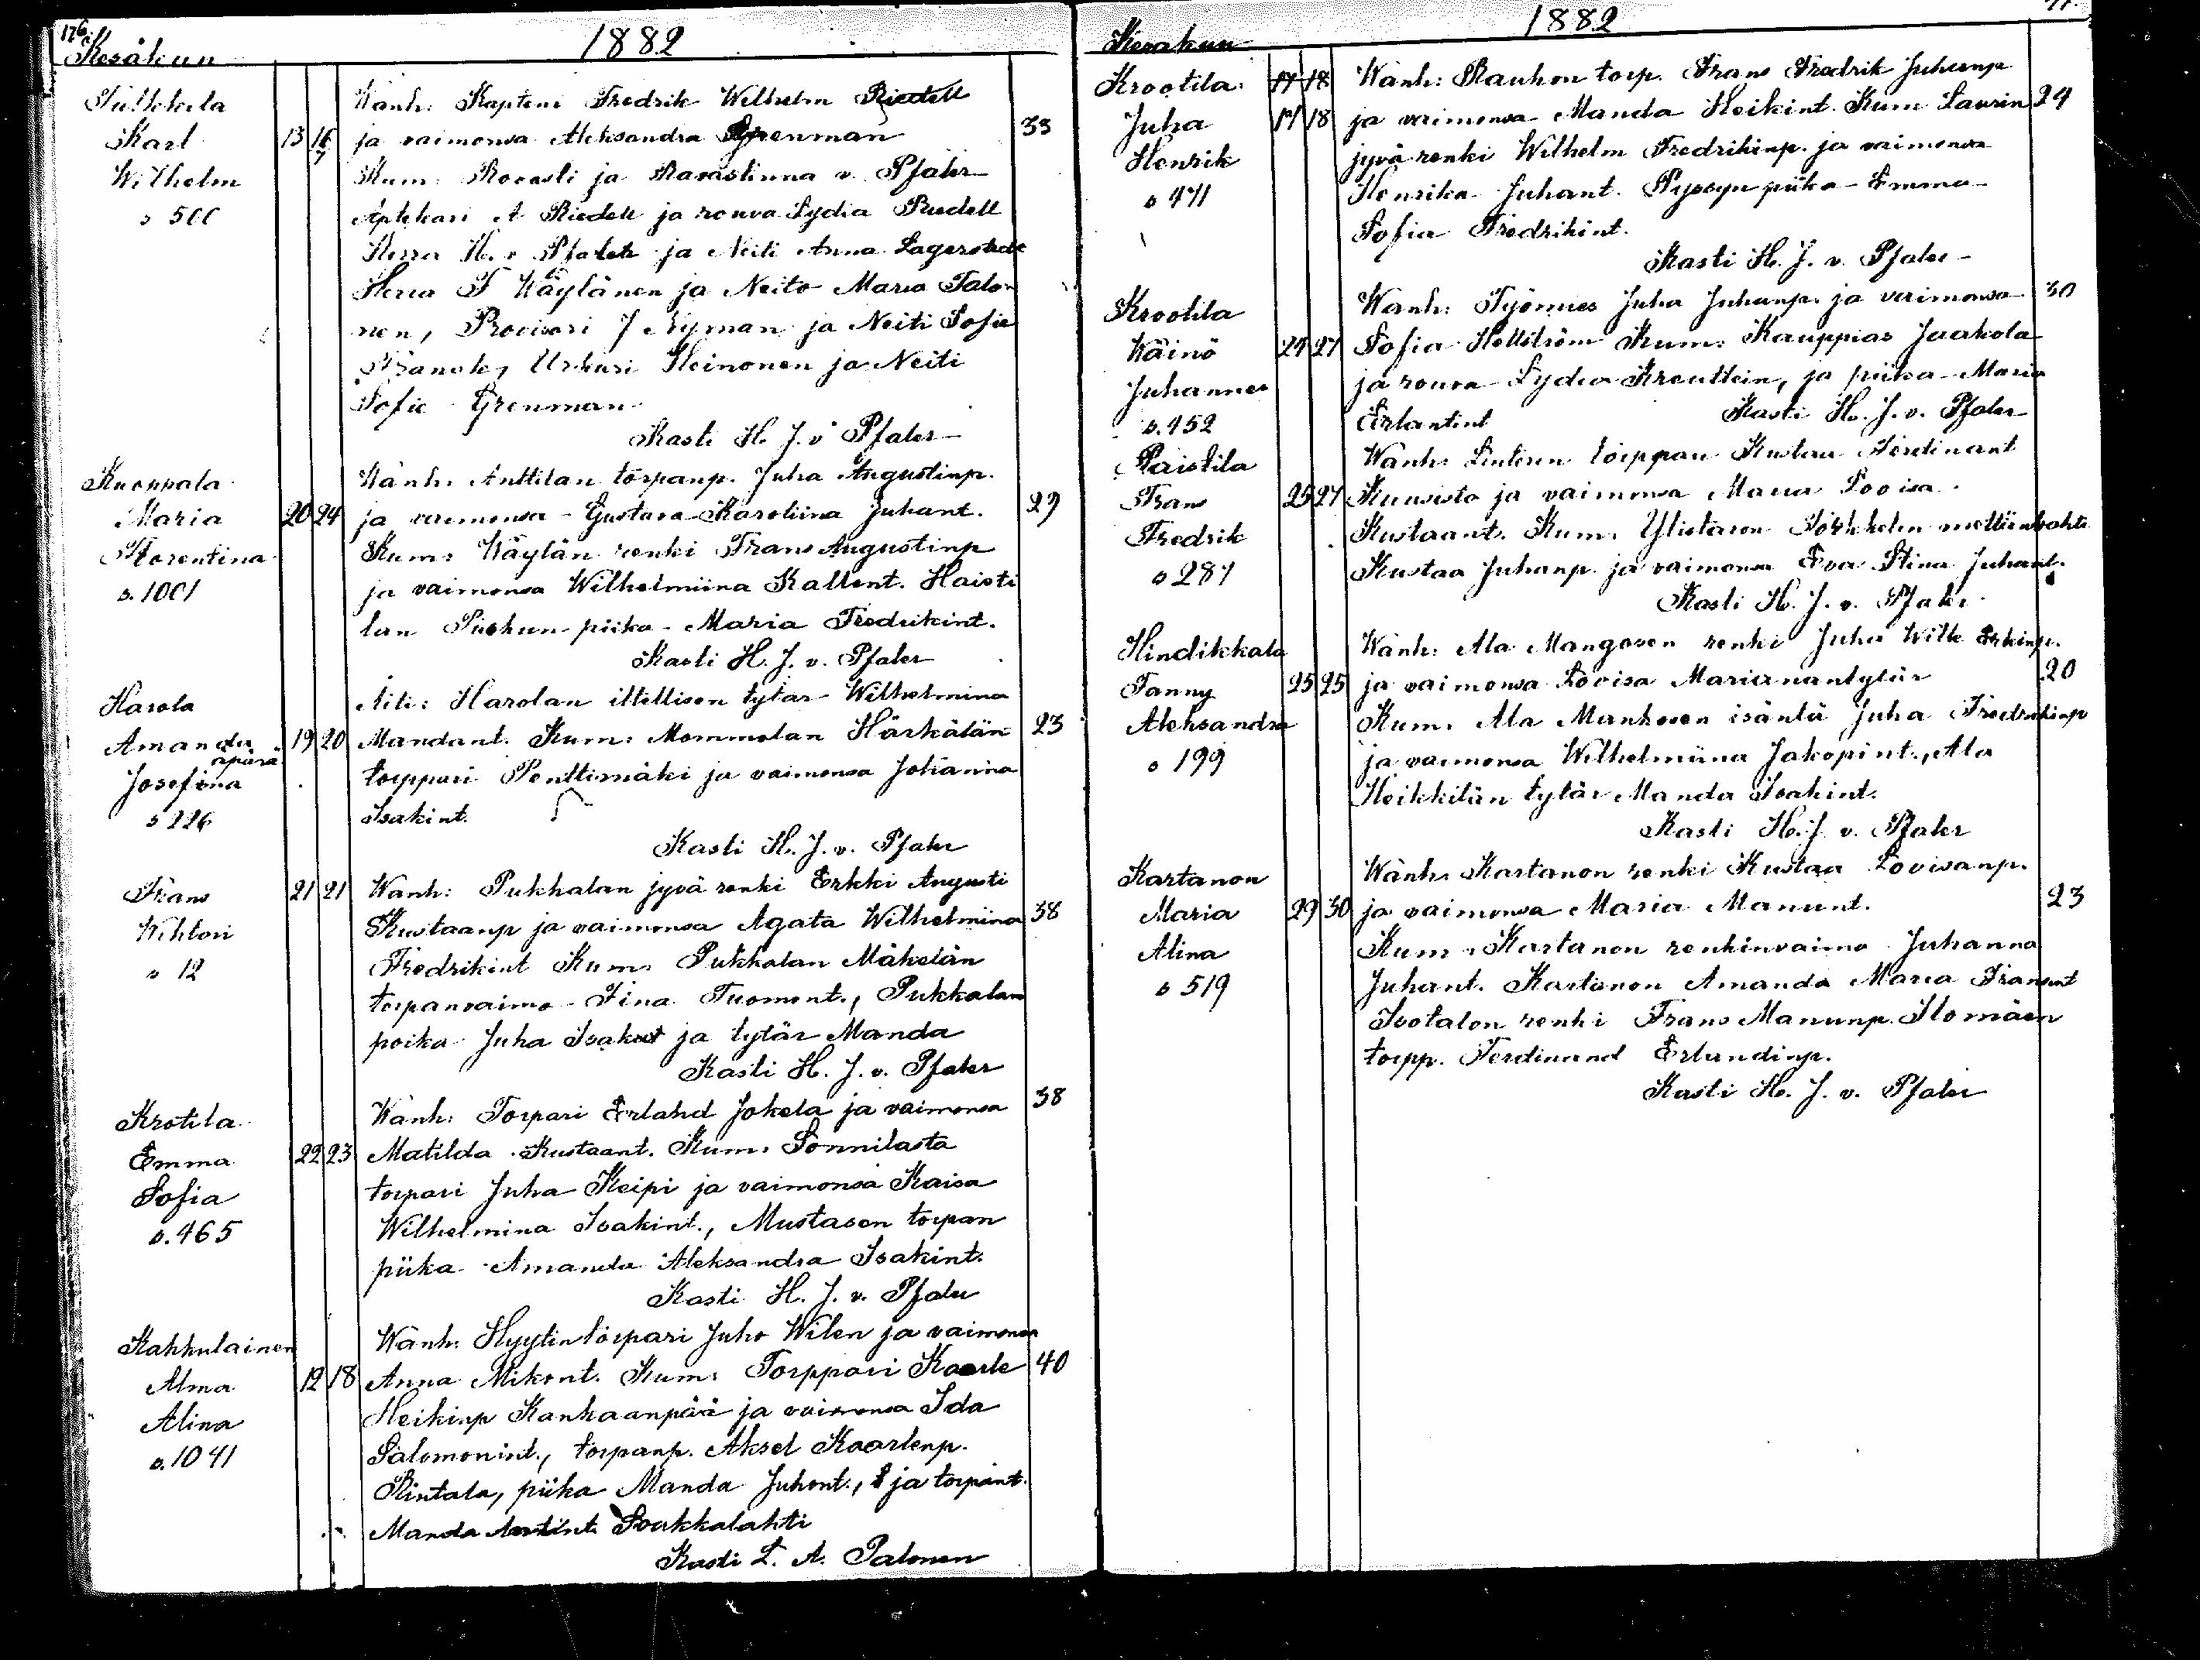 176.
Kesäkun 1882
Wanh: Kapteni Fredrik Wilhelm Riedell
Karl 13 16/7 ja vaimonsa Aleksandra Grenman 33
Wilhelm Kum: Rovasti ja Rovastinna v. Pfaler
s 500 Aptekari A Riedell ja rouva Lydia Riedell
Herra H. v Pfaler ja Neiti Anna Lagerstedt
Herra F Käylänen ja Neito Maria Talo
nen, Proviisori J Nyman ja Neiti Sofia
Urkuri Heinonen ja Neiti
Sofie Grenman
Kasti H. J. v Pfaler
Kuoppala Wanh. Anttilan torpanp. Juha Augustinp.
Maria 20 24 ja vaimonsa Gustava Karoliina Juhant. 29
Florentina Kum: Käylän renki Frans Augustinp
s. 1001 ja vaimonsa Wilhelmiina Kallent. Haisti
lan piika Maria Fredrikint.
Kasti H. J. v. Pfaler
Harola Äiti: Harolan itellisen tytär Wilhelmina
Amanda 19 20 Mandant. Kum: Mommolan Härkälän 23
äpärä
Josefina torppari Penttimäki ja vaimonsa Johanna
s 226 Isakint.
Kasti H. J. v. Pfaler
Frans 21 21 Wanh: Pukkalan jyvä renki Erkki Augusti
Wihtori Kustaanp ja vaimonsa Agata Wilhelmiina 38
s 12 Fredrikint Kum: Pukkalan Mäkelän
torpanvaimo Fina Tuomont., Pukkalan
poika Juha Isakint ja tytär Manda
Kasti H. J. v. Pfaler
Krotila Wanh: Torpari Erlahd Jokela ja vaimonsa 38
Emma 22 23 Matilda Kustaant. Kum: Sonnilasta
Sofia torpari Juha Keipi ja vaimonsa Kaisa
s. 465 Wilhelmina Isakint., Mustason torpan
piika Amanda Aleksandra Isakint.
Kasti H. J. v. Pfaler
Kakkulainen Wanh: Hyytin torpari Juho Wilen ja vaimonsa
Alma 12 18 Anna Mikont. Kum: Torppari Kaarle 40
Alina Heikinp Kankaanpää ja vaimonsa Ida
s. 1041 Salomonint., torpanp. Aksel Kaarlenp.
Rintala, piika Manda Juhont., ja torpant.
Manda Soukkalahti
Kasti L. A. Palonen
Kesäkun 1882
Krootila 17 18 Wanh: Rauhon torp. Frans Fredrik Juhanp
Juha 17 18 ja vaimonsa Manda Heikint. Kum Laurin 24
Henrik jyvä renki Wilhelm Fredrikinp. ja vaimonsa
s 471 Henrika Juhant. Pyssyn piika Emma
Sofia Fredrikint.
Kasti H. J. v. Pfaler
Krootila Wanh: Työmies Juha Juhanp. ja vaimonsa 30
Wäinö 24 27 Sofia Hellström Kum: Kauppias Jaakola
Juhannes ja rouva Lydia Kreuttein, ja piika Maria
s. 452 Erlantint Kasti H. J. v. Pfaler
Raistila Wanh: torppari Kustaa Ferdinant
Frans 25 27 Kuusisto ja vaimonsa Maria Lovisa
Fredrik Kustaant. Kum. Ylistaron mettänvahti
s 287 Kustaa Juhanp. ja vaimonsa Eva Stina Juhant.
Kasti H. J. v. Pfaler
Hindikkala Wanh: Ala Mangosen renki Juha Wilh Erkinp.
Fanny 25 25 ja vaimonsa Lovisa Mariantytär 20
Aleksandra Kum. Ala Mankosen isäntä Juha Fredrikinp
s 199 ja vaimonsa Wilhelmiina Jakopint., Ala
Heikkilän tytär Manda Isakint.
Kasti H. J. v. Pfaler
Kartanon Wanh. Kartanon renki Kustaa Lovisanp.
Maria 29 30 ja vaimonsa Maria Manunt. 23
Alina Kum: Kartanon renkinvaimo Juhanna
s 519 Juhant. Kartanon Amanda Maria Fransint
Isotalon renki Frans Manunp. Ilomäen
torpp. Ferdinand Erlandinp.
Kasti H. J. v. Pfaler